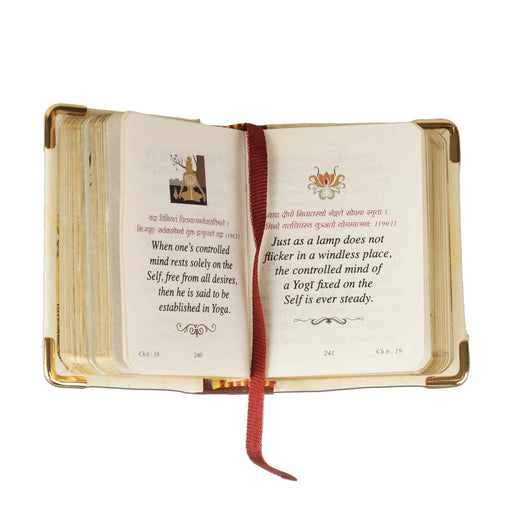 यदा विनियतं चित्तमात्मन्येवावतिष्ठते ।
निःस्पृहः सर्वकामेभ्यो युक्त इत्युच्यते तदा ॥१८॥
When one's controlled
mind rests solely on the
Self, free from all desires,
then he is said to be
established in Yoga.
Ch 6 : 18
240
यथा दीपो निवातस्थो नेङ्गते सोपमा स्मृता ।
यतचित्तस्य युञ्जतो योगमात्मनः ॥१९॥
Just as a lamp does not
flicker in a windless place,
the controlled mind of
a Yogī fixed on the
Self is ever steady.
241
Ch 6 : 19